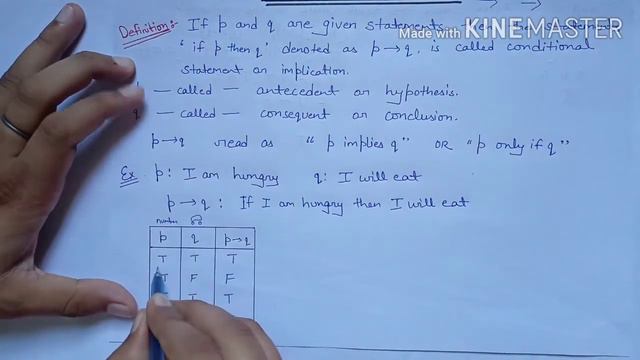 Made with KINEMASTER
Definition:- If p and q are given statements
'if p then q' denoted as p→q, is called conditional
statement or implication.
— called — antecedent or hypothesis.
q — called — consequent or conclusion.
p→q read as "p implies q" OR "p only if q"
Ex p: I am hungry q: I will eat
p→q : If I am hungry then I will eat
number
p q p→q
T T T
T F F
T T